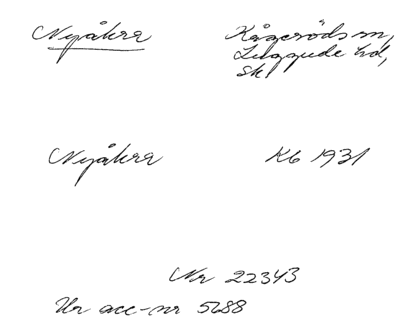 Nyåkra Kågeröds sn,
Luggude hd,
Sk
Nyåkra Kb 1931
Nr 22343
Ur acc-nr 5688